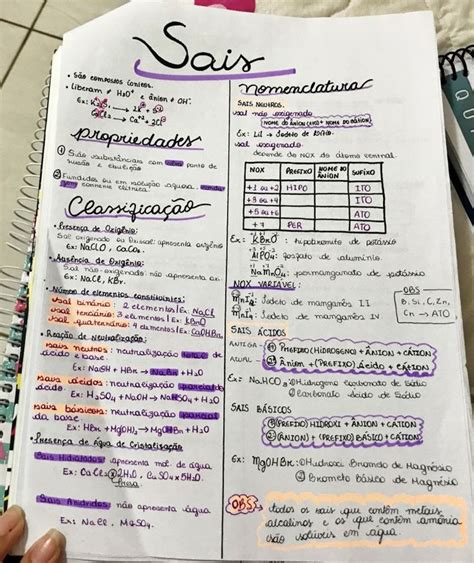 Sais
• São compostos iônicos.
• Liberam ≠ H₃O⁺ e ânion ≠ OH⁻.
propriedades
① São substâncias com alto ponto de
fusão e ebulição
② Fundidos ou em solução aquosa, conduzem
corrente elétrica.
Classificação
• Presença de Oxigênio:
Sal oxigenado ou Oxissal: apresenta oxigênio
Ex: NaClO, CaCO₃.
• Ausência de Oxigênio:
Sal não-oxigenado: não apresenta ox.
Ex: NaCl, KBr.
• Número de elementos constituintes:
sal binário: 2 elementos/Ex: NaCl
sal ternário: 3 elementos/Ex: KBrO
sal quaternário: 4 elementos/Ex: CaOHBr
• Reação de Neutralização:
sais neutros: neutralização total do
ácido e base.
Ex: NaOH + HBr → NaBr + H₂O
sais ácidos: neutralização parcial do
ácido.
Ex: H₂SO₄ + NaOH → NaHSO₄ + H₂O
sais básicos: neutralização parcial
da base.
Ex: HBr + Hg(OH)₂ → HgOHBr + H₂O
• Presença de Água de Cristalização
Sais Hidratados: apresenta mol. de água
Ex: CaCl₂ · 2H₂O, CuSO₄ · 5H₂O.
Sais Anidridos: não apresenta água
Ex: NaCl, MgSO₄.
nomenclatura
SAIS NEUTROS.
sal não oxigenado
NOME DO ÂNION (eto) + NOME DO CÁTION
Ex: LiI → Iodeto de lítio.
sal oxigenado:
depende do NOX do átomo central.
NOX PREFIXO NOME DO ÂNION SUFIXO
+1 ou +2 HIPO ITO
+3 ou +4 ITO
+5 ou +6 ATO
+7 PER ATO
Ex: KBrO: hipobromito de potássio
AlPO₄: fosfato de alumínio.
NaMnO₄: permanganato de potássio
NOX VARIÁVEL:
MnI₂: Iodeto de manganês II
MnI₄: Iodeto de manganês IV
OBS
B, Si, C, Zn,
Cn → ATO
SAIS ÁCIDOS
ANTIGA - ① PREFIXO (HIDROGENO) + ÂNION + CÁTION
ATUAL - ② Ânion + (PREFIXO) Ácido + CÁTION
Ex: NaHCO₃: ① Hidrogeno Carbonato de Sódio
② Carbonato ácido de Sódio
SAIS BÁSICOS
① (PREFIXO) HIDROXI + ÂNION + CÁTION
② (ÂNION) + (PREFIXO) BÁSICO + CÁTION
Ex: MgOHBr: ① Hidroxi Brometo de Magnésio
② Brometo Básico de Magnésio
OBS: todos os sais que contêm metais
alcalinos e os que contêm amônia
são solúveis em água.